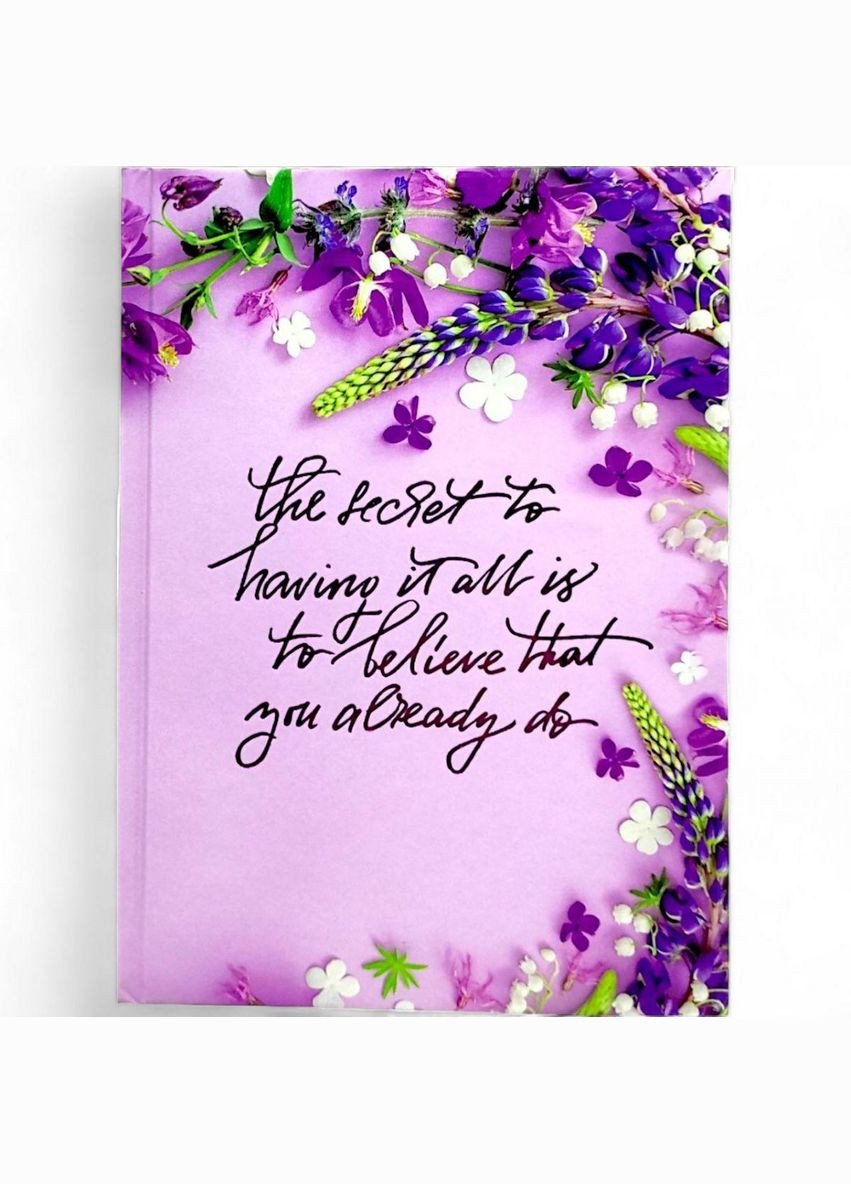 the secret to
having it all is
to believe that
you already do